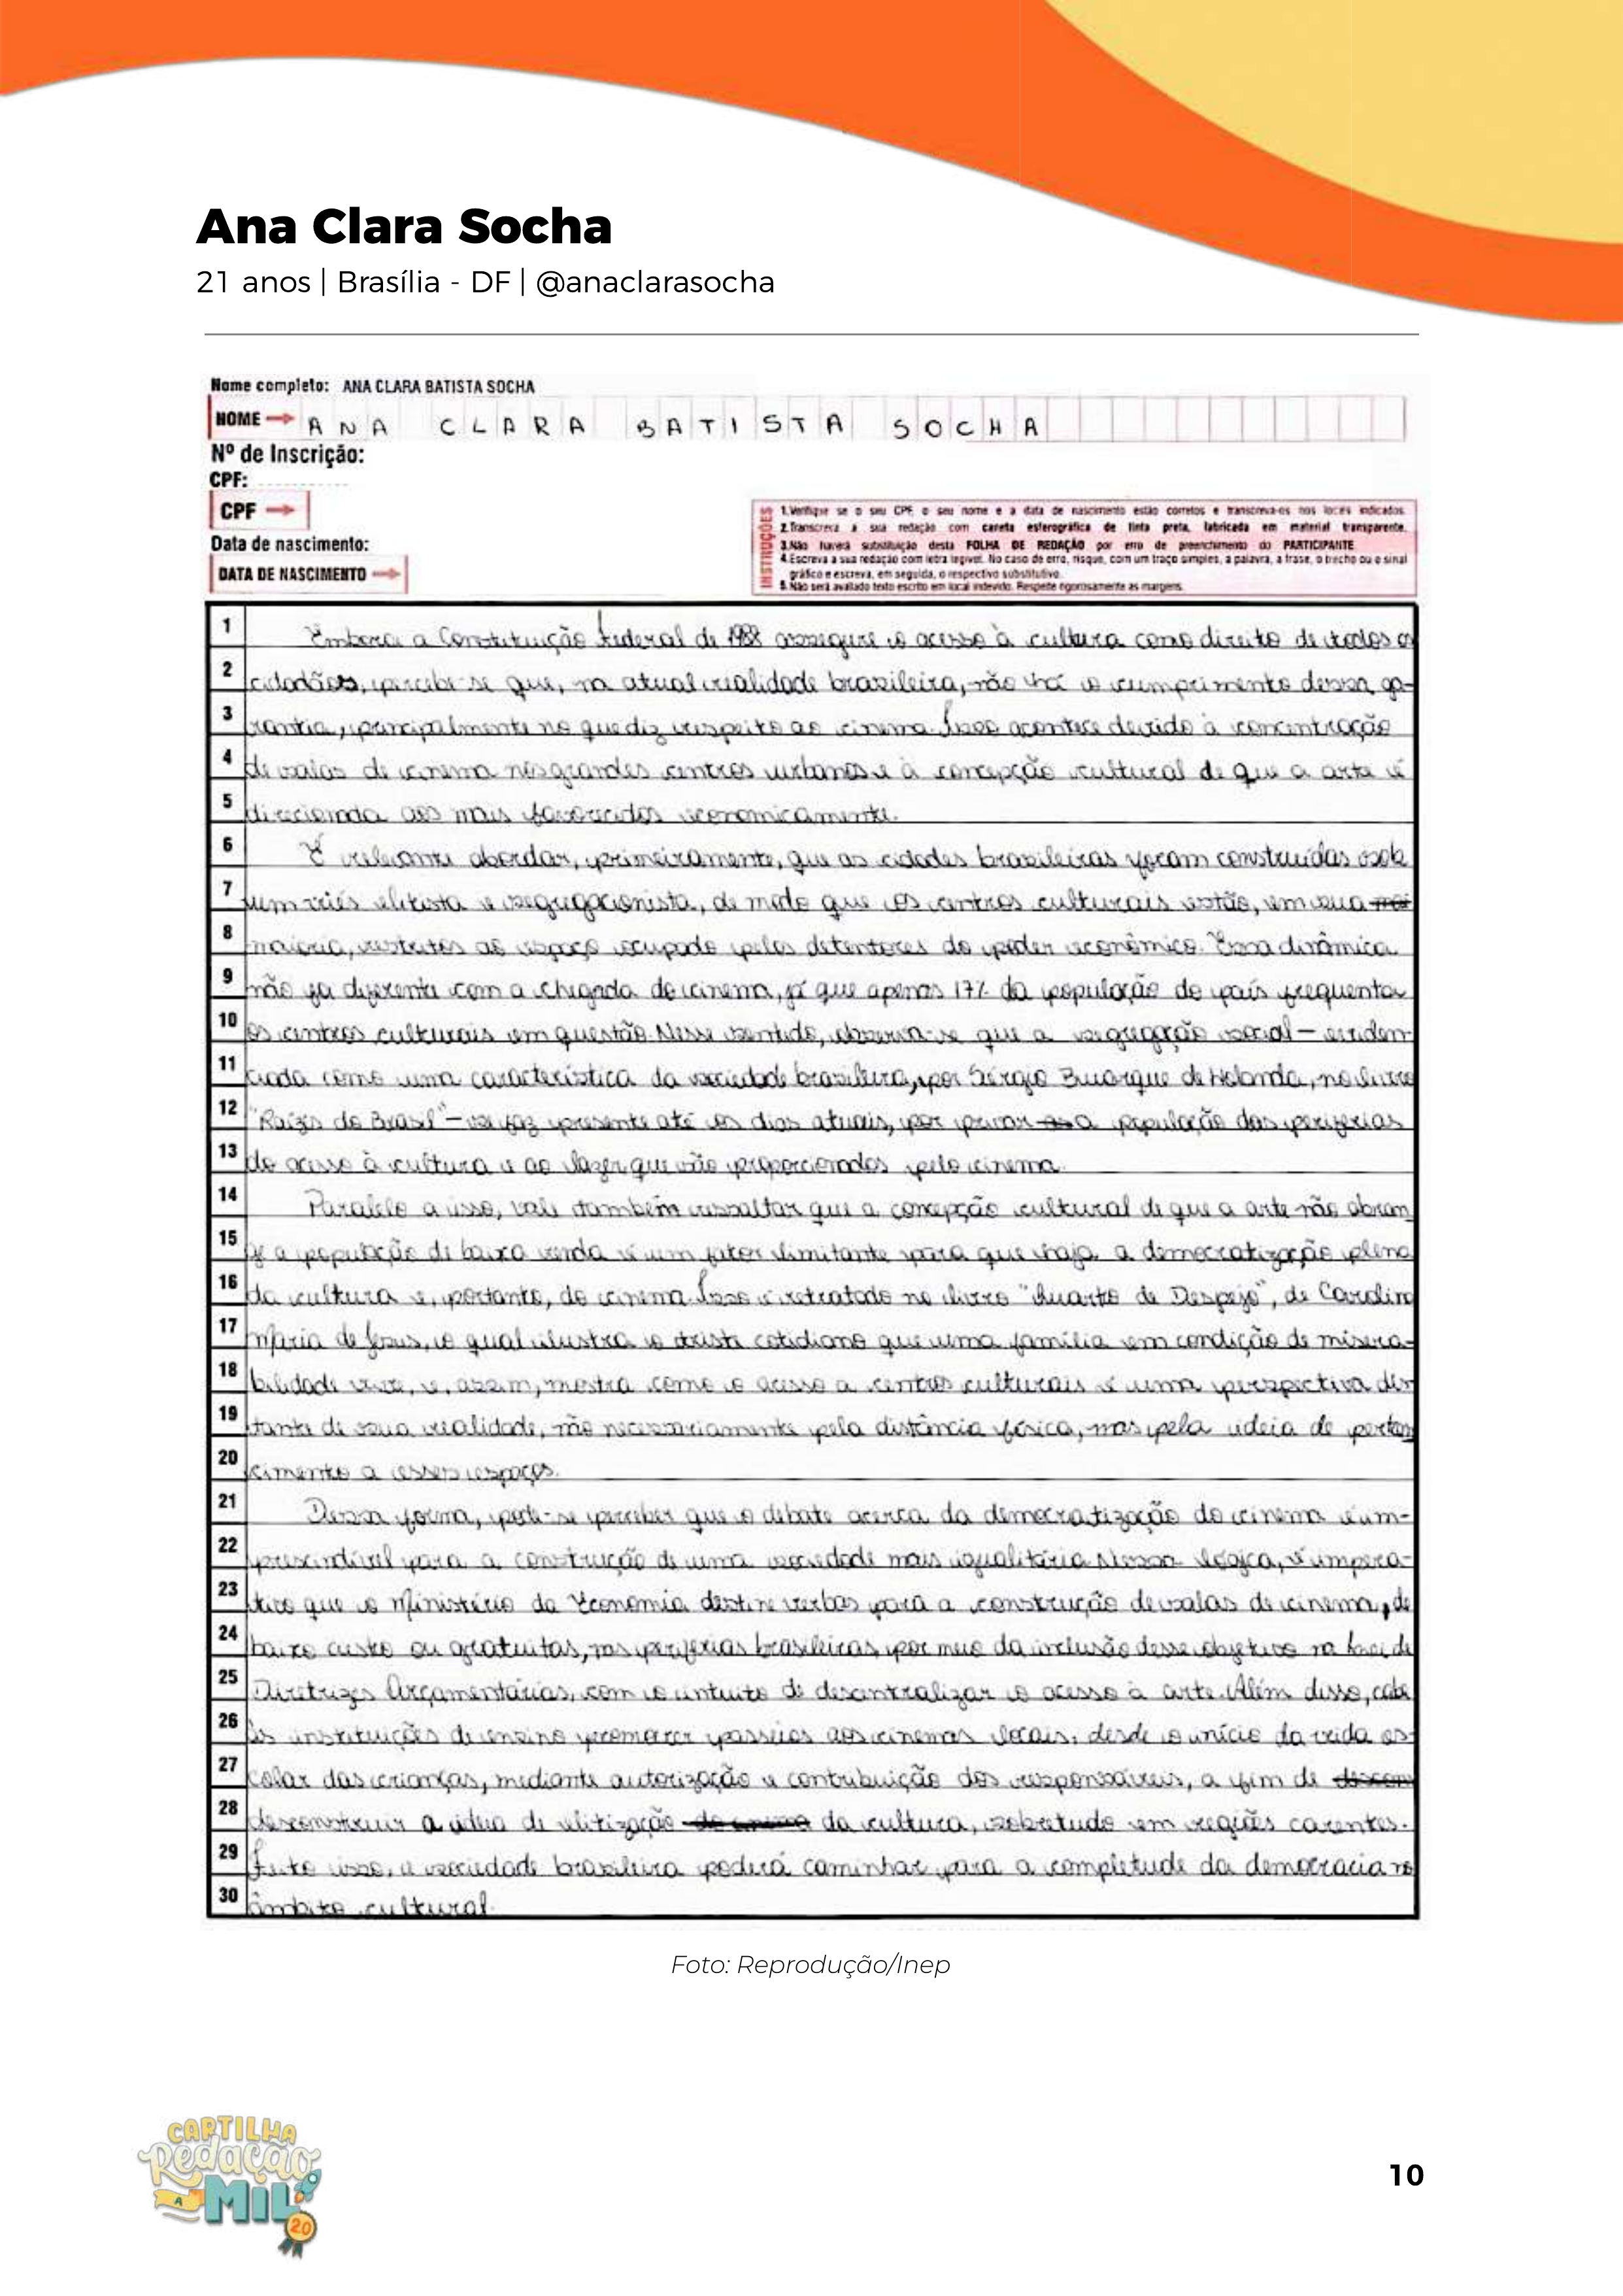 Ana Clara Socha
21 anos | Brasília - DF | @anaclarasocha
Nome completo: ANA CLARA BATISTA SOCHA
NOME ANA CLARA BATISTA SOCHA
Nº de Inscrição:
CPF:
CPF
Data de nascimento:
DATA DE NASCIMENTO
INSTRUÇÕES
1.Verifique se o seu CPF, o seu nome e a data de nascimento estão corretos e transcreva-os nos locais indicados.
2.Transcreva a sua redação com caneta esferográfica de tinta preta, fabricada em material transparente.
3.Não haverá substituição desta FOLHA DE REDAÇÃO por erro de preenchimento do PARTICIPANTE
4.Escreva a sua redação com letra legível. No caso de erro, risque, com um traço simples, a palavra, a frase, o trecho ou o sinal
gráfico e escreva, em seguida, o respectivo substitutivo.
5.Não será avaliado texto escrito em local indevido. Respeite rigorosamente as margens.
1 Embora a Constituição Federal de 1988 assegure o acesso à cultura como direito de todos os
2 cidadãos, percebe-se que, na atual realidade brasileira, não há o cumprimento dessa ga-
3 rantia, principalmente no que diz respeito ao cinema. Isso acontece devido à concentração
4 de salas de cinema nos grandes centros urbanos e à concepção cultural de que a arte é
5 direcionada aos mais favorecidos economicamente.
6 É relevante abordar, primeiramente, que as cidades brasileiras foram construídas sob
7 um viés elitista e segregacionista, de modo que os centros culturais estão, em sua
8 maioria, restritos ao espaço ocupado pelos detentores do poder econômico. Essa dinâmica
9 não foi diferente com a chegada do cinema, já que apenas 17% da população do país frequenta
10 os centros culturais em questão. Nesse sentido, observa-se que a segregação social – eviden-
11 ciada como uma característica da sociedade brasileira, por Sérgio Buarque de Holanda, no livro
12 "Raízes do Brasil" – se faz presente até os dias atuais, por privar a população das periferias
13 do acesso à cultura e ao lazer que são proporcionados pelo cinema.
14 Paralelo a isso, vale também ressaltar que a concepção cultural de que a arte não abran
15 ge a população de baixa renda é um fator limitante para que haja a democratização plena
16 da cultura e, portanto, do cinema. Isso é retratado no livro "Quarto de Despejo", de Carolina
17 Maria de Jesus, o qual ilustra o triste cotidiano que uma família em condição de misera-
18 bilidade vive, e, assim, mostra como o acesso a centros culturais é uma perspectiva dis
19 tante de sua realidade, não necessariamente pela distância física, mas pela ideia de perten
20 cimento a esses espaços.
21 Dessa forma, pode-se perceber que o debate acerca da democratização do cinema é im-
22 prescindível para a construção de uma sociedade mais igualitária. Nessa lógica, é impera-
23 tivo que o Ministério da Economia destine verbas para a construção de salas de cinema, de
24 baixo custo ou gratuitas, nas periferias brasileiras, por meio da inclusão desse objetivo na Lei de
25 Diretrizes Orçamentárias, com o intuito de descentralizar o acesso à arte. Além disso, cabe
26 às instituições de ensino promover passeios aos cinemas locais, desde o início da vida es-
27 colar das crianças, mediante autorização e contribuição dos responsáveis, a fim de
28 desconstruir a ideia de elitização da cultura, sobretudo em regiões carentes.
29 Feito isso, a sociedade brasileira poderá caminhar para a completude da democracia no
30 âmbito cultural.
Foto: Reprodução/Inep
CARTILHA
Redação
A
MIL
20
10